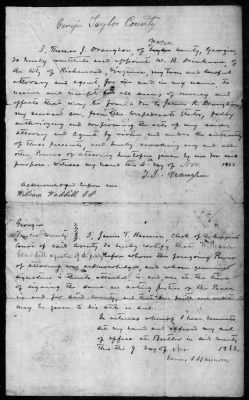 Georgia Taylor County
I, Thomas J. Draughon, of Taylor County, Georgia,
do hereby constitute and appoint W. B.
the city of Richmond, Virginia, my true and lawful
attorney and agent for me and in my name to
receive and receipt for all sums of money and
effects that may be from a due to James R. Draughon,
my deceased son, from the Confederate States, hereby
authorizing and confirming the acts of my said
attorney and agent by virtue and under the authority
of these presents, and hereby revoking any and all
other Powers of Attorney heretofore given by me for said
purpose. Witness my hand this day of
T. J. Draughon
acknowledged before me.
William Waddill J.P.
Georgia
Taylor County I, James T. Harmon Clerk of the Superior
Court of said County do hereby certify that William
before whom the foregoing Power
of attorney was acknowledged, and whose genuine
signature is thereto attached is and was at the time
of signing the same an acting Justice of the Peace
in and for said County, and that full faith and credit
may be given to his acts as such.
In witness whereof I have hereunto
set my hand and affixed my seal
of office at Butler in said County
this the 9 day of 1863.
James T Harmon